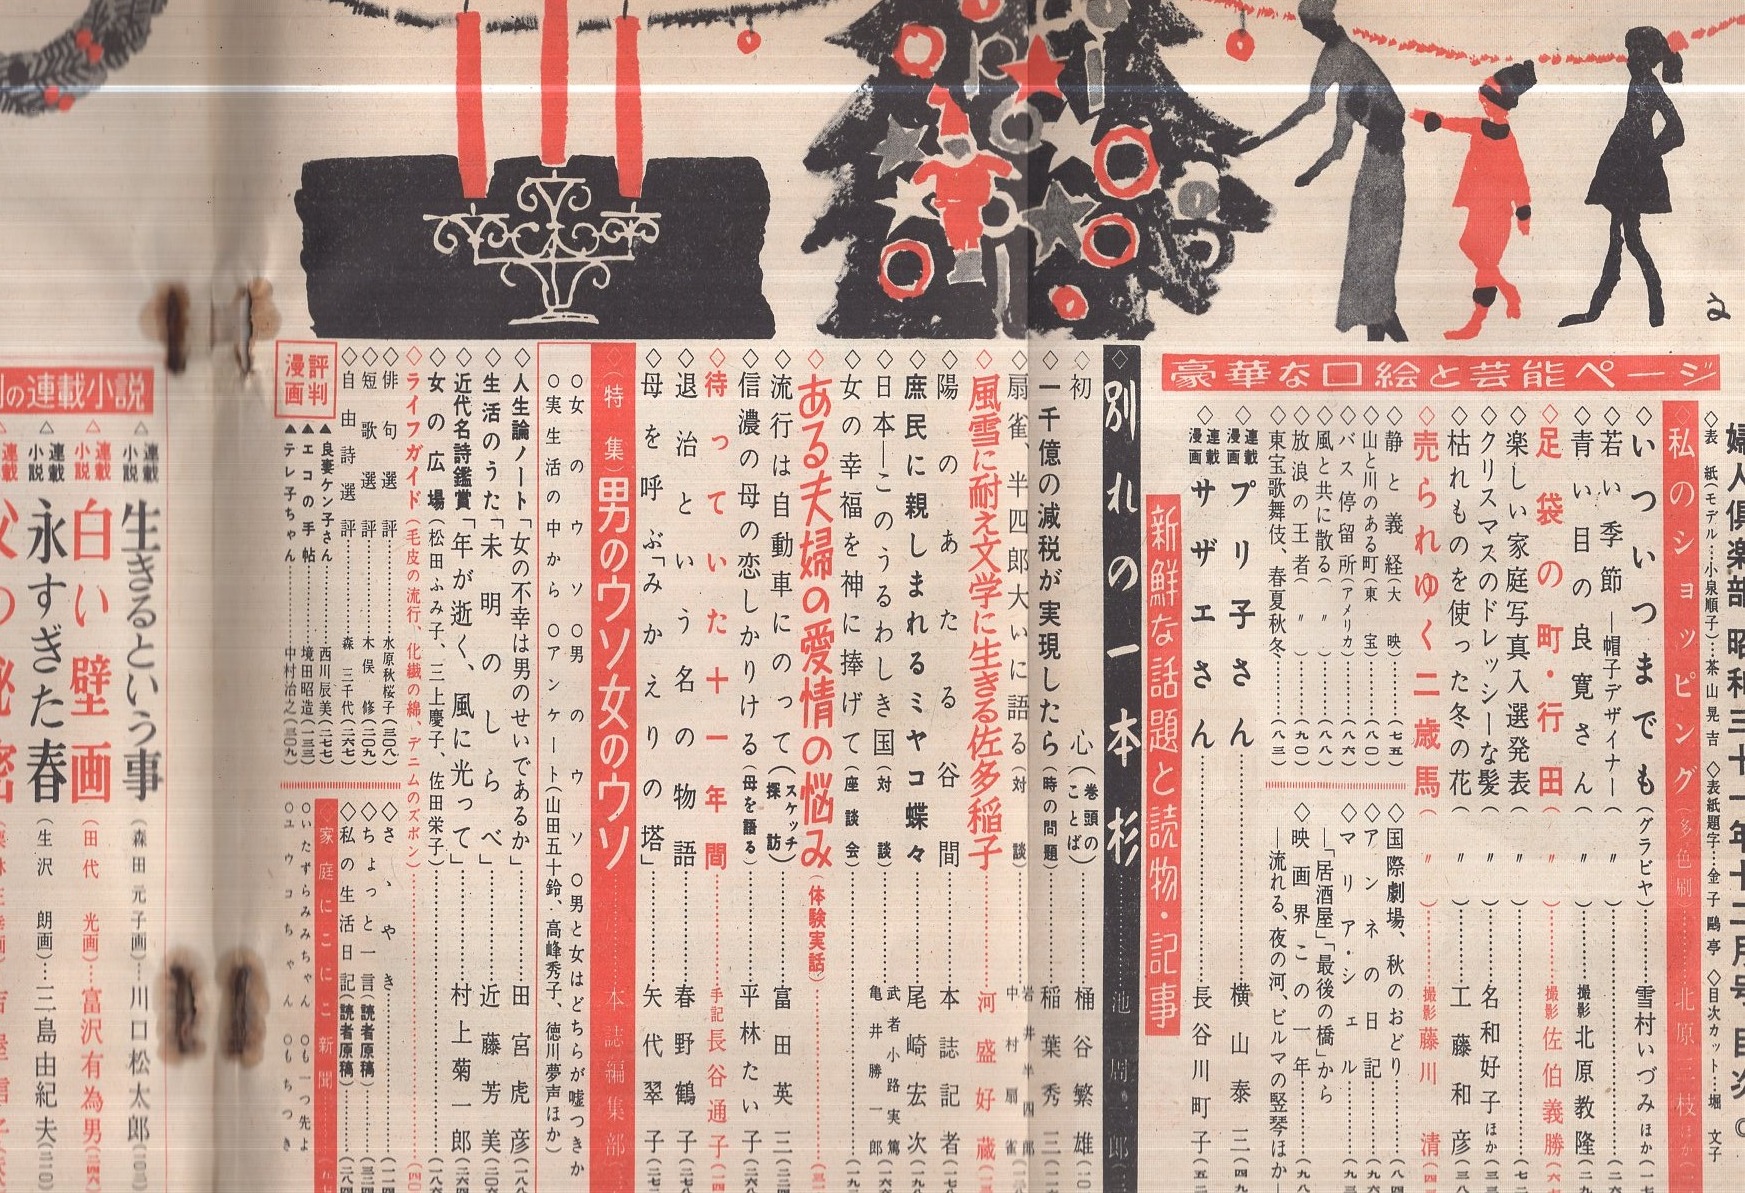 婦人倶楽部 昭和三十一年十二月号 目次
◇表紙(モデル…小泉順子)…茶山晃吉 ◇表紙題字…金子鷗亭 ◇目次カット…堀文子
豪華な口絵と芸能ページ
◇私のショッピング(多色刷)……北原三枝ほか
◇いついつまでも(グラビヤ)……雪村いづみほか
◇若い季節―帽子デザイナー(〃)
◇青い目の良寛さん(〃)……撮影 北原教隆
◇足袋の町・行田(〃)……撮影 佐伯義勝
◇楽しい家庭写真入選発表(〃)
◇クリスマスのドレッシーな髪(〃)……名和好子ほか
◇枯れものを使った冬の花(〃)……工藤和彦
◇売られゆく二歳馬(〃)……撮影 藤川清
◇静と義経(大映)……(七五)
◇山と川のある町(東宝)……(八〇)
◇バス停留所(アメリカ)……(八六)
◇風と共に散る(〃)……(八八)
◇放浪の王者(〃)……(九〇)
◇東宝歌舞伎、春夏秋冬……(八三)
◇国際劇場、秋のおどり
◇アンネの日記
◇マリア・シェル
―「居酒屋」「最後の橋」から
◇映画界この一年
―流れる、夜の河、ビルマの竪琴ほか―
◇連載漫画 プリ子さん……横山泰三
◇連載漫画 サザエさん……長谷川町子
新鮮な話題と読物・記事
◇別れの一本杉……池周一郎
◇初心(巻頭のことば)……桶谷繁雄
◇一千億の減税が実現したら(時の問題)……稲葉秀三
◇扇雀、半四郎大いに語る(対談)……岩井半四郎 中村扇雀
◇風雪に耐え文学に生きる佐多稲子……河盛好蔵
◇陽のあたる谷間……本誌記者
◇庶民に親しまれるミヤコ蝶々……尾崎宏次
◇日本―このうるわしき国(対談)……武者小路実篤 亀井勝一郎
◇女の幸福を神に捧げて(座談会)
◇ある夫婦の愛情の悩み(体験実話)
◇流行は自動車にのって(スケッチ探訪)……富田英三
◇信濃の母の恋しかりける(母を語る)……平林たい子
◇待っていた十一年間……手記 長谷通子
◇退治という名の物語……春野鶴子
◇母を呼ぶ「みかえりの塔」……矢代翠子
◇(特集)男のウソ女のウソ……本誌編集部
○女のウソ ○男のウソ ○男と女はどちらが嘘つきか
○実生活の中から ○アンケート(山田五十鈴、高峰秀子、徳川夢声ほか)
◇人生論ノート「女の不幸は男のせいであるか」……田宮虎彦
◇生活のうた「未明のしらべ」……近藤芳美
◇近代名詩鑑賞「年が逝く、風に光って」……村上菊一郎
◇女の広場(松田ふみ子、三上慶子、佐田栄子)
◇ライフガイド(毛皮の流行、化繊の綿、デニムのズボン)
◇俳句選評……水原秋桜子(三〇八)
◇短歌選評……木俣修(二〇九)
◇自由詩選評……森三千代(二六七)
◇さゝやき
◇ちょっと一言(読者原稿)
◇私の生活日記(読者原稿)
評判漫画
▲良妻ケン子さん……西川辰美(二七七)
▲エコの手帖……境田昭造(一三三)
▲テレ子ちゃん……中村治之(三〇九)
◇家庭にこにこ新聞
○いたずらみみちゃん ○も一つ先よ
○ユウコちゃん ○もちつき
の連載小説
△連載小説 生きるという事(森田元子画)…川口松太郎
△連載小説 永すぎた春(生沢朗画)…三島由紀夫
△連載小説 白い壁画(田代光画)…富沢有為男